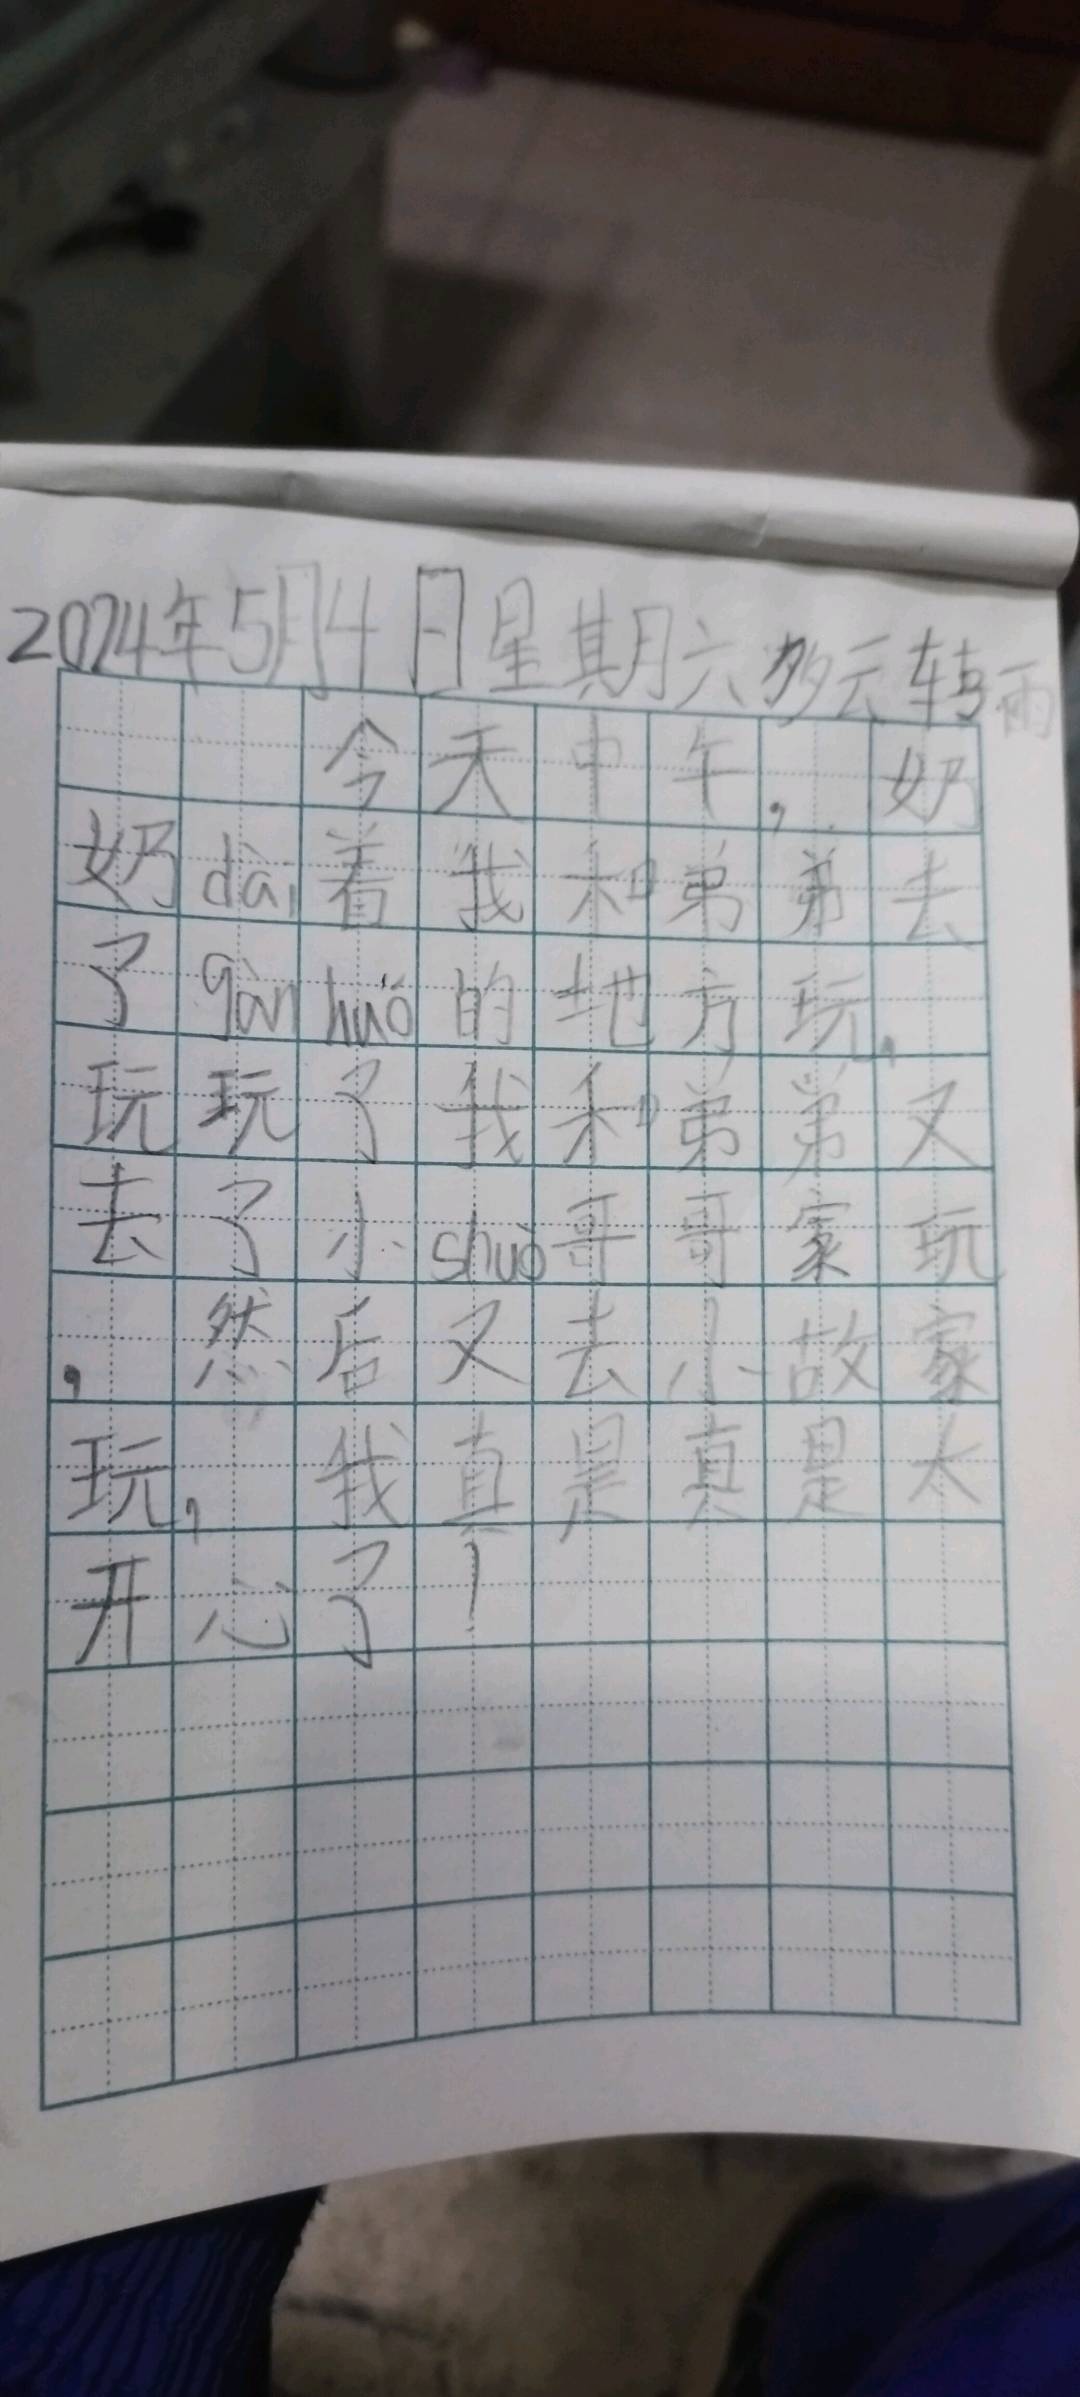 2024年5月4日星期六多云转雨
今天中午,奶
奶dài着我和弟弟去
了gànhuó的地方玩,
玩玩了我和弟弟又
去了小shuò哥哥家玩
,然后又去小故家
玩,我真是真是太
开心了!